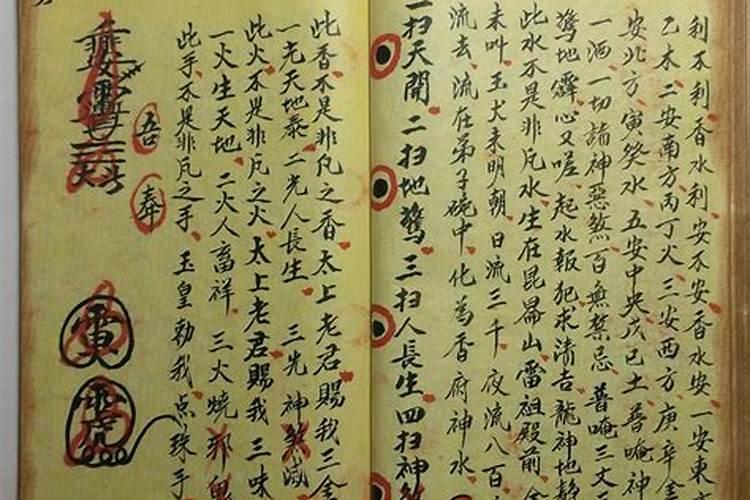 利不利香水利安不安香水安一安東
乙木二安南方丙丁火三安西方庚辛金
安北方寅癸水五安中央戊己土普唵神
一洒一切諸神惡煞百無禁忌普唵三丈
驚地靈心又嗟起水報犯求清吉龍神地靜
此水不是非凡水生在昆侖山雷祖殿前
未叫玉犬未明朝日流三千夜流八百
流去流在弟子碗中化為香府神水
一扫天開二扫地驚三扫人長生四扫神煞
此香不是非凡之香太上老君賜我三金
一光天地泰二光人長生三光神煞滅
此火不是非凡之火太上老君賜我三味
一火生天地二火人畜祥三火燒邪鬼
此手不是非凡之手玉皇勅我点珠手
吾奉